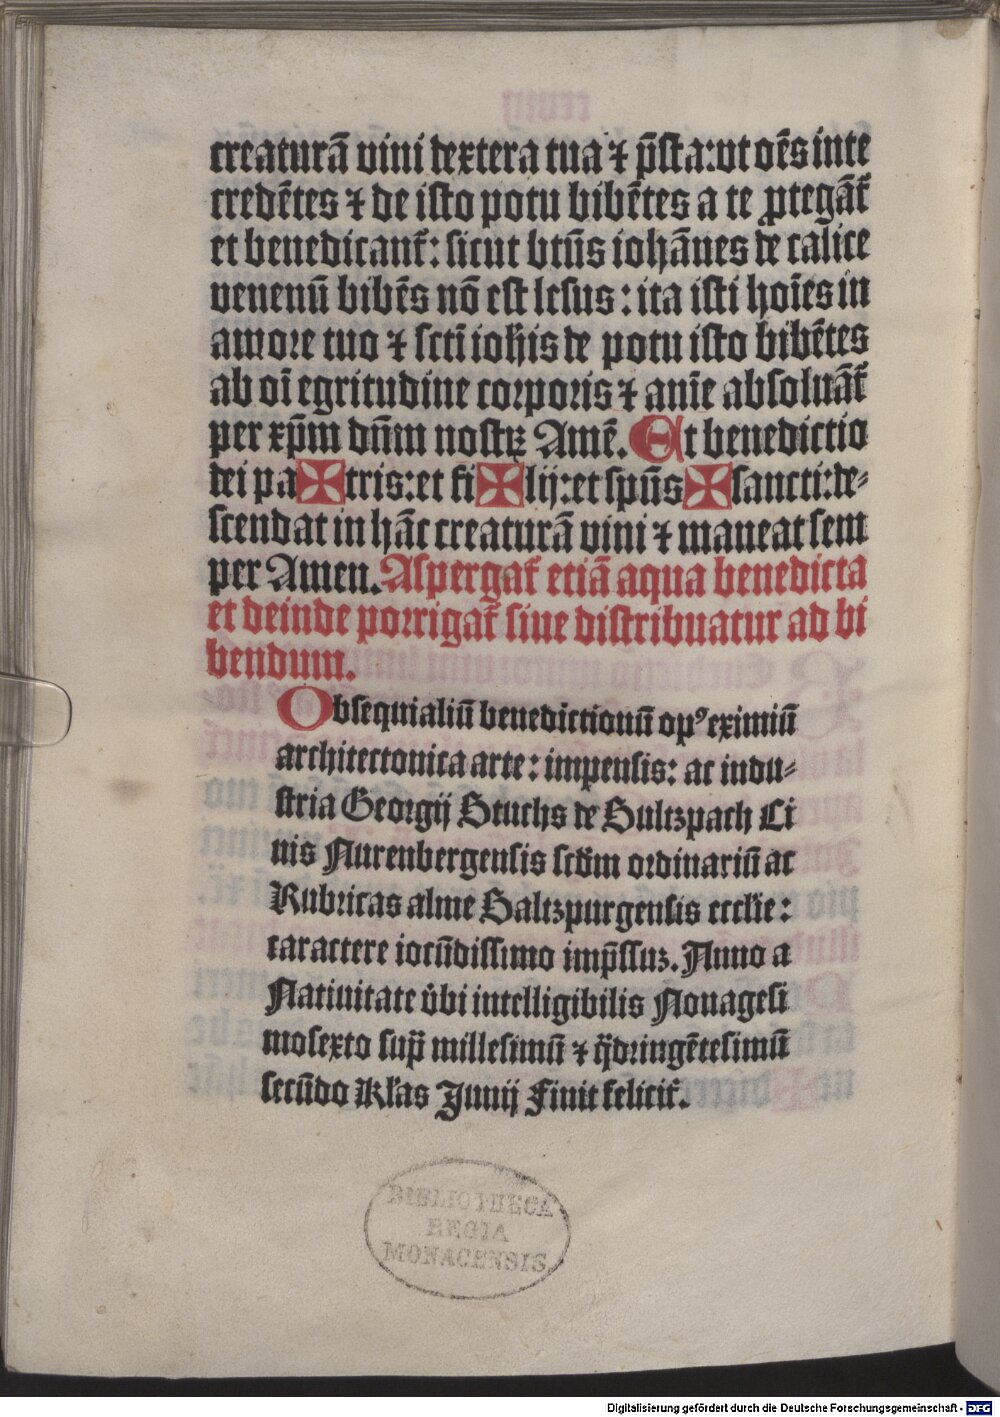 creaturā vini dextera tua ⁊ p̄sta: vt oēs in te
credētes ⁊ de isto potu bibētes a te ꝓtegāt᷑
et benedicant᷑: sicut btūs iohānes de calice
venenū bibēs nō est lesus: ita isti hoīes in
amore tuo ⁊ sctī ioh̄is de potu isto bibētes
ab oī egritudine corporis ⁊ anīe absoluāt᷑
per xp̄m dn̄m nostrꝫ Amē. Et benedictio
dei pa✠tris: et fi✠lij: et spūs✠sancti: de⸗
scendat in hāc creaturā vini ⁊ maneat sem
per Amen. Aspergat᷑ etiā aqua benedicta
et deinde porrigat᷑ siue distribuatur ad bi
bendum.
Obsequialiū benedictionū opꝰ eximiū
architectonica arte: impensis: ac indu⸗
stria Georgij Stuchs de Sultzpach Ci
uis Nurenbergensis scd̄m ordinariū ac
Rubricas alme Saltzpurgensis eccl̄ie:
caractere iocūdissimo imp̄ssuꝫ. Anno a
Natiuitate v̄bi intelligibilis Nonagesi
mosexto sup̄ millesimū ⁊ q̈dringētesimū
secūdo Kl̄as Junij Finit felicit᷑.
BIBLIOTHECA
REGIA
MONACENSIS
Digitalisierung gefördert durch die Deutsche Forschungsgemeinschaft - DFG